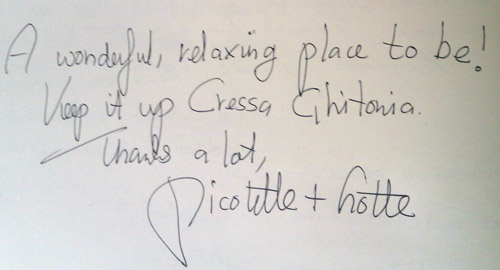 A wonderful, relaxing place to be!
Keep it up Cressa Ghitonia.
Thanks a lot,